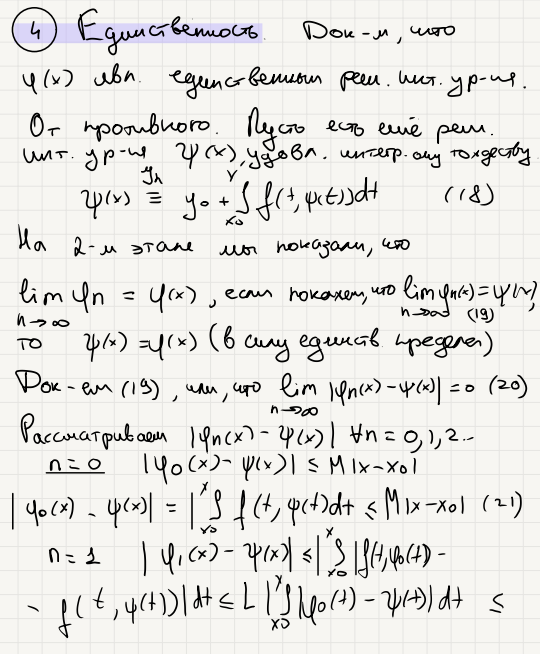 4 Единственность. Док-м, что
φ(x) явл. единственным реш. инт. ур-ия.
От противного. Пусть есть ещё реш.
инт. ур-ия ψ(x), удовл. интегр. ому тождеству
ψ(x) ≡ y₀ + ∫_{x₀}^{x} f(t, ψ(t))dt (18)
На 2-м этапе мы показали, что
lim_{n→∞} φn = φ(x), если покажем, что lim_{n→∞} φn(x) = ψ(x), (19)
то ψ(x) = φ(x) (в силу единств. предела)
Док-ем (19), или, что lim_{n→∞} |φn(x) - ψ(x)| = 0 (20)
Рассматриваем |φn(x) - ψ(x)| ∀n = 0,1,2..
n=0 |φ₀(x) - ψ(x)| ≤ M|x-x₀|
|φ₀(x) - ψ(x)| = |∫_{x₀}^{x} f(t, ψ(t)dt ≤ M|x-x₀| (21)
n=1 |φ₁(x) - ψ(x)| ≤ |∫_{x₀}^{x} |f(t, φ₀(t) -
- f(t, ψ(t))|dt ≤ L |∫_{x₀}^{x} |φ₀(t) - ψ(t)|dt ≤